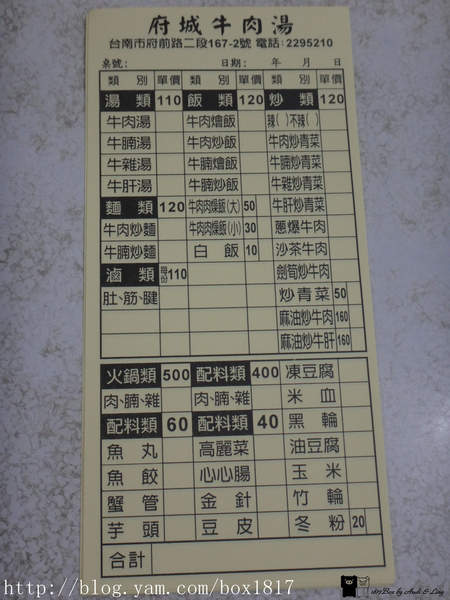 府城牛肉湯
台南市府前路二段167-2號 電話:2295210
桌號: 日期: 年 月 日
類別 單價 類別 單價 類別 單價
湯類 110 飯類 120 炒類 120
牛肉湯 牛肉燴飯 辣( )不辣( )
牛腩湯 牛肉炒飯 牛肉炒青菜
牛雜湯 牛腩燴飯 牛腩炒青菜
牛肝湯 牛腩炒飯 牛雜炒青菜
麵類 120 牛肉肉燥飯(大) 50 牛肝炒青菜
牛肉炒麵 牛肉肉燥飯(小) 30 蔥爆牛肉
牛腩炒麵 白飯 10 沙茶牛肉
滷類 每份110 劍筍炒牛肉
肚、筋、腱 炒青菜 50
麻油炒牛肉 160
麻油炒牛肝 160
火鍋類 500 配料類 400 凍豆腐
肉、腩、雜 肉、腩、雜 米血
配料類 60 配料類 40 黑輪
魚丸 高麗菜 油豆腐
魚餃 心心腸 玉米
蟹管 金針 竹輪
芋頭 豆皮 冬粉 20
合計
http://blog.yam.com/box1817
1817Box by Andi & Ling